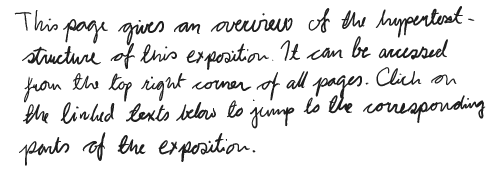 This page gives an overview of the hypertext-
structure of this exposition. It can be accessed
from the top right corner of all pages. Click on
the linked texts below to jump to the corresponding
parts of the exposition.